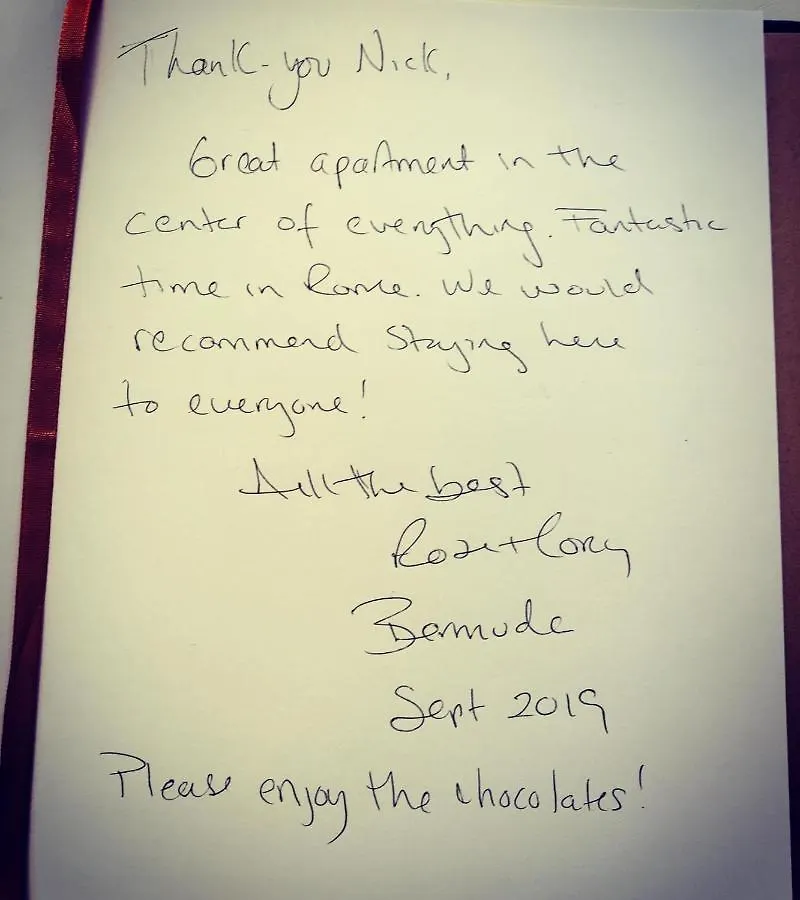 Thank-you Nick,
Great apartment in the
center of everything. Fantastic
time in Rome. We would
recommend staying here
to everyone!
All the best
Bermuda
Sept 2019
Please enjoy the chocolates!